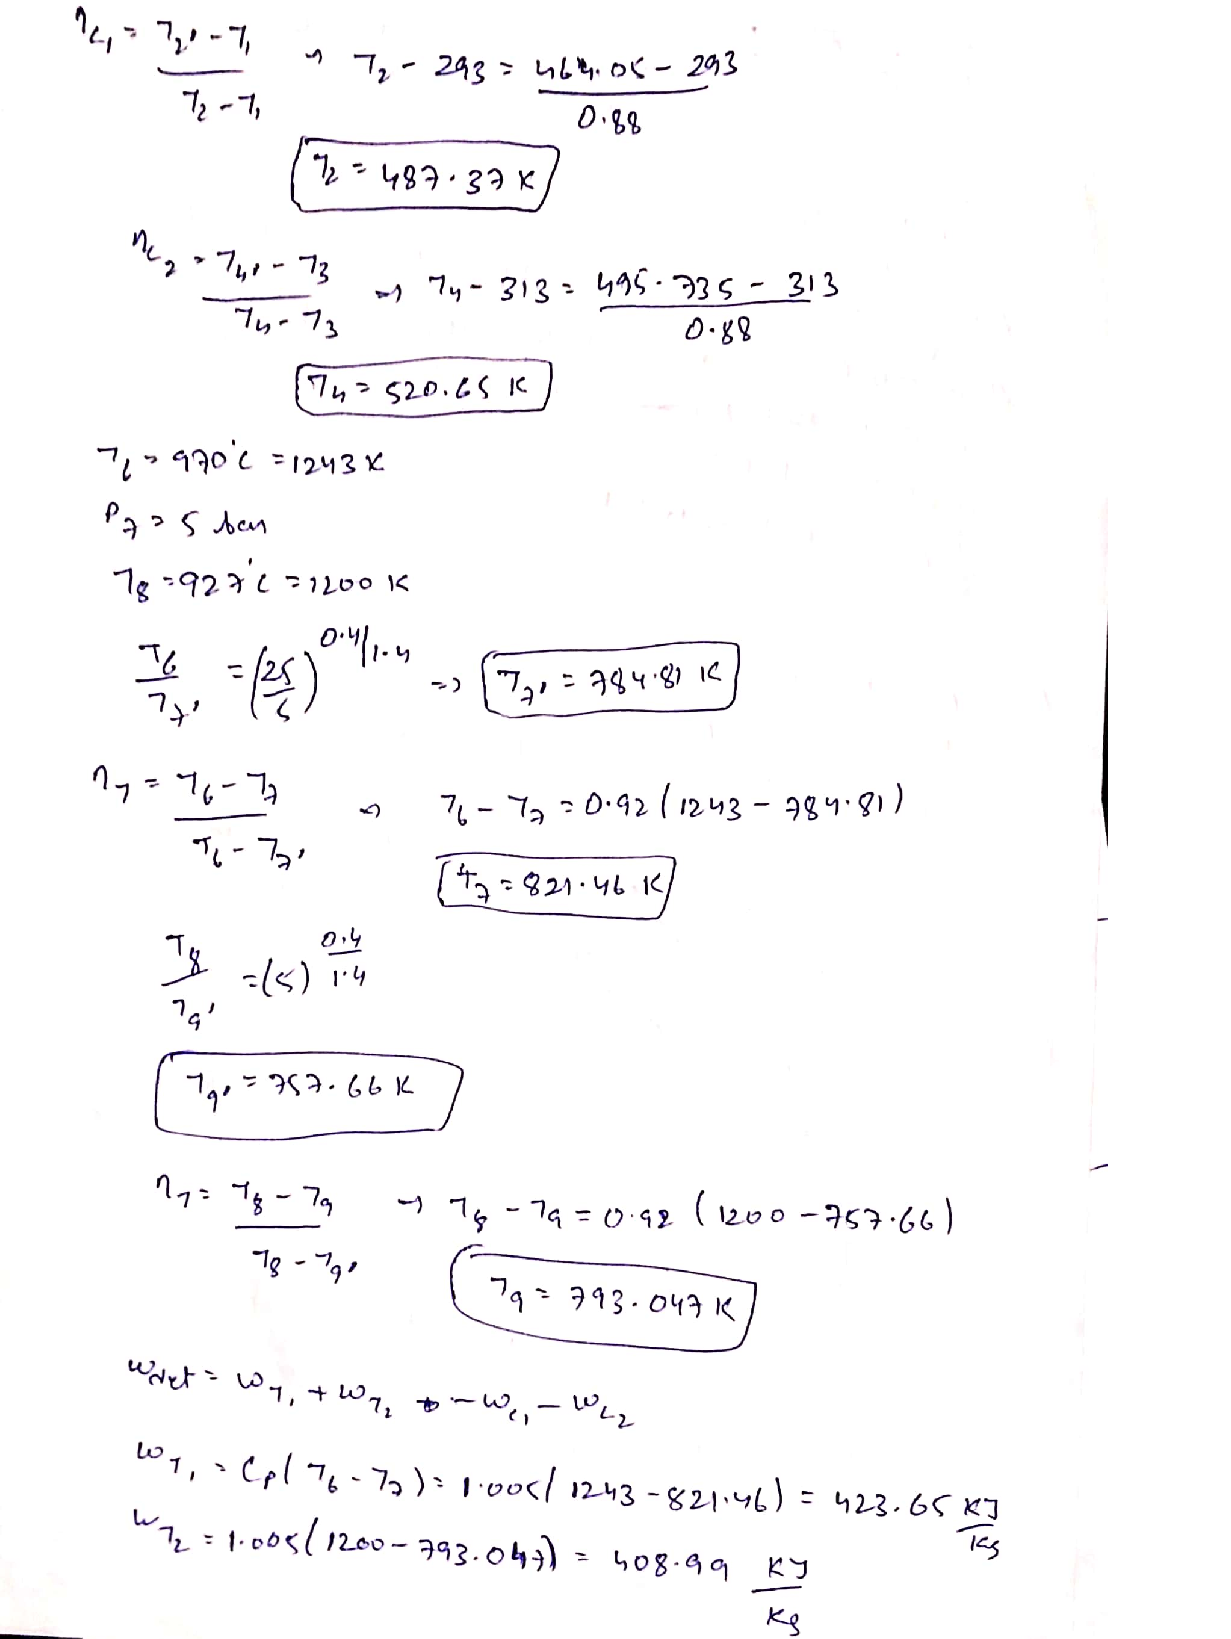 ηc₁ = T₂' - T₁ / T₂ - T₁ ⇒ T₂ - 293 = 464.05 - 293 / 0.88
T₂ = 487.37 K
ηc₂ = T₄' - T₃ / T₄ - T₃ ⇒ T₄ - 313 = 495.735 - 313 / 0.88
T₄ = 520.65 K
T₆ = 970°C = 1243 K
P₇ = 5 bar
T₈ = 927°C = 1200 K
T₆ / T₇' = (25/5)^0.4/1.4 ⇒ T₇' = 784.81 K
η_T = T₆ - T₇ / T₆ - T₇' ⇒ T₆ - T₇ = 0.92 (1243 - 784.81)
T₇ = 821.46 K
T₈ / T₉' = (5)^0.4/1.4
T₉' = 757.66 K
η_T = T₈ - T₉ / T₈ - T₉' ⇒ T₈ - T₉ = 0.92 (1200 - 757.66)
T₉ = 793.047 K
W_Net = W_T₁ + W_T₂ - W_c₁ - W_c₂
W_T₁ = Cp(T₆ - T₇) = 1.005(1243 - 821.46) = 423.65 KJ/Kg
W_T₂ = 1.005(1200 - 793.047) = 408.99 KJ/Kg